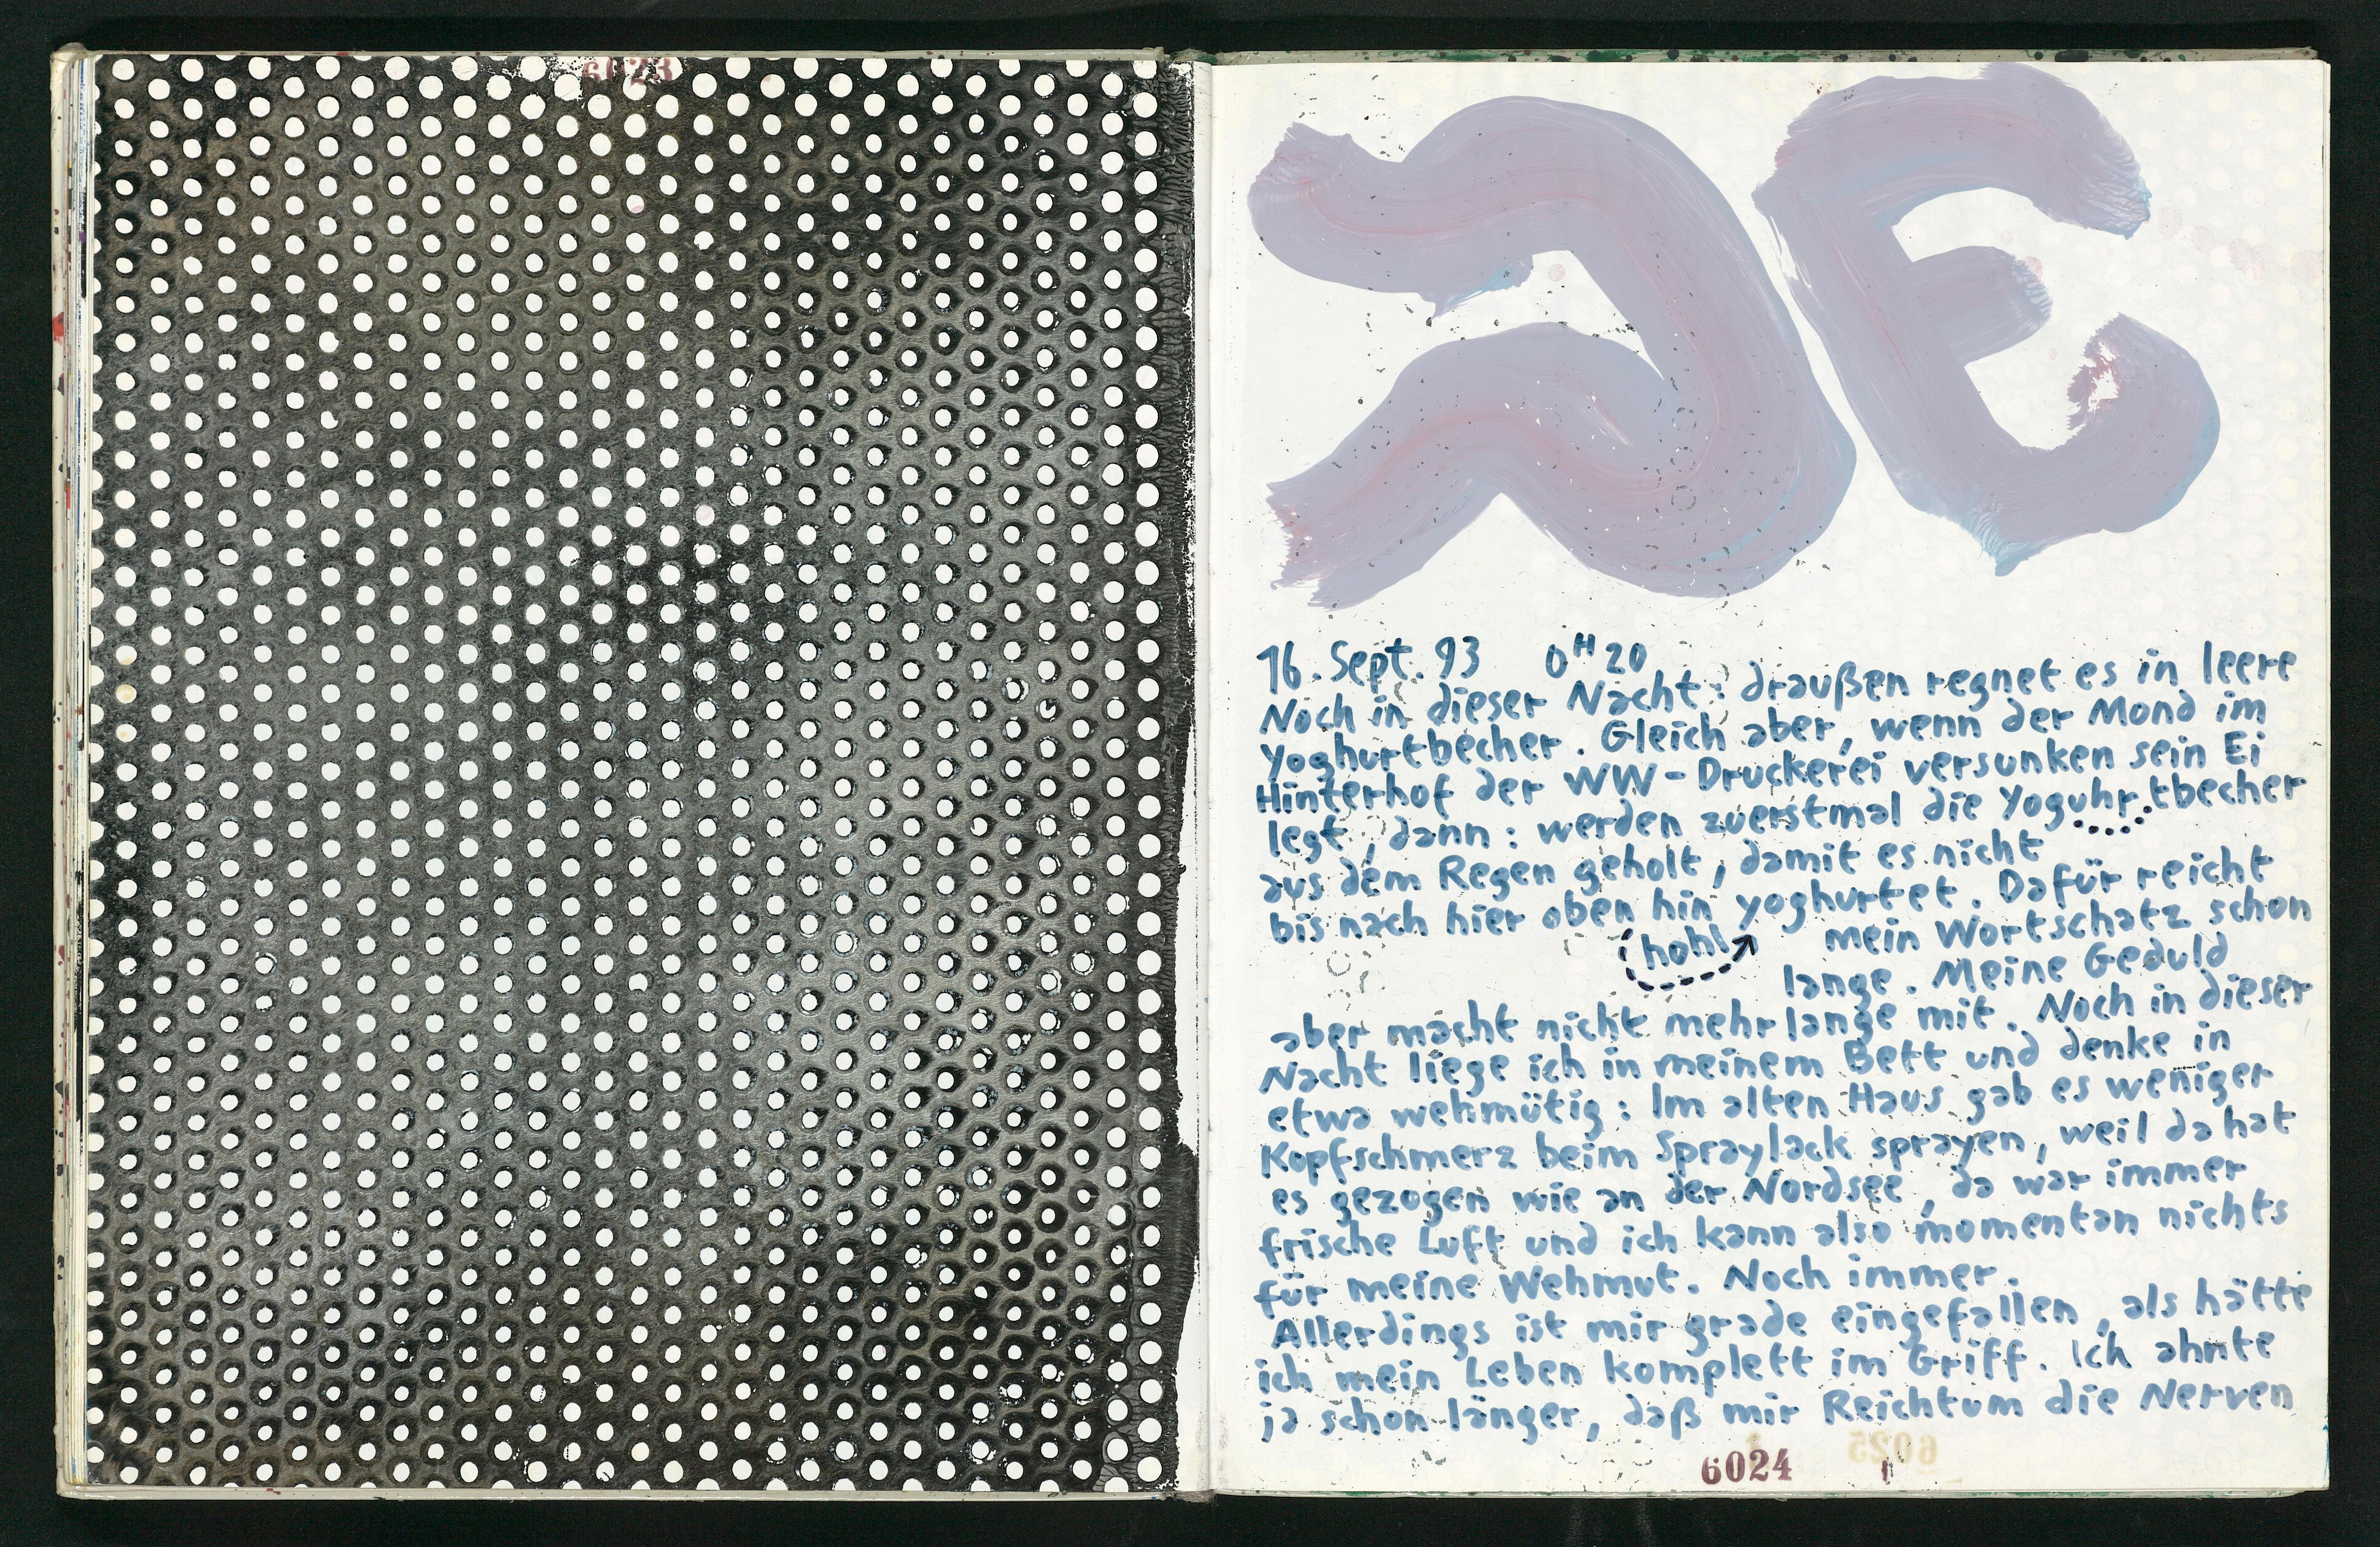 6023
16. Sept. 93 0H20
Noch in dieser Nacht: draußen regnet es in leere
Yoghurtbecher. Gleich aber, wenn der Mond im
Hinterhof der WW-Druckerei versunken sein Ei
legt, dann: werden zuerstmal die Yoguhrtbecher
aus dem Regen geholt, damit es nicht
bis nach hier oben hin yoghurtet. Dafür reicht
hohl mein Wortschatz schon
lange. Meine Geduld
aber macht nicht mehr lange mit. Noch in dieser
Nacht liege ich in meinem Bett und denke in
etwa wehmütig: Im alten Haus gab es weniger
Kopfschmerz beim Spraylack sprayen, weil da hat
es gezogen wie an der Nordsee, da war immer
frische Luft und ich kann also momentan nichts
für meine Wehmut. Noch immer.
Allerdings ist mir grade eingefallen, als hätte
ich mein Leben komplett im Griff. Ich ahnte
ja schon länger, daß mir Reichtum die Nerven
6024
6025